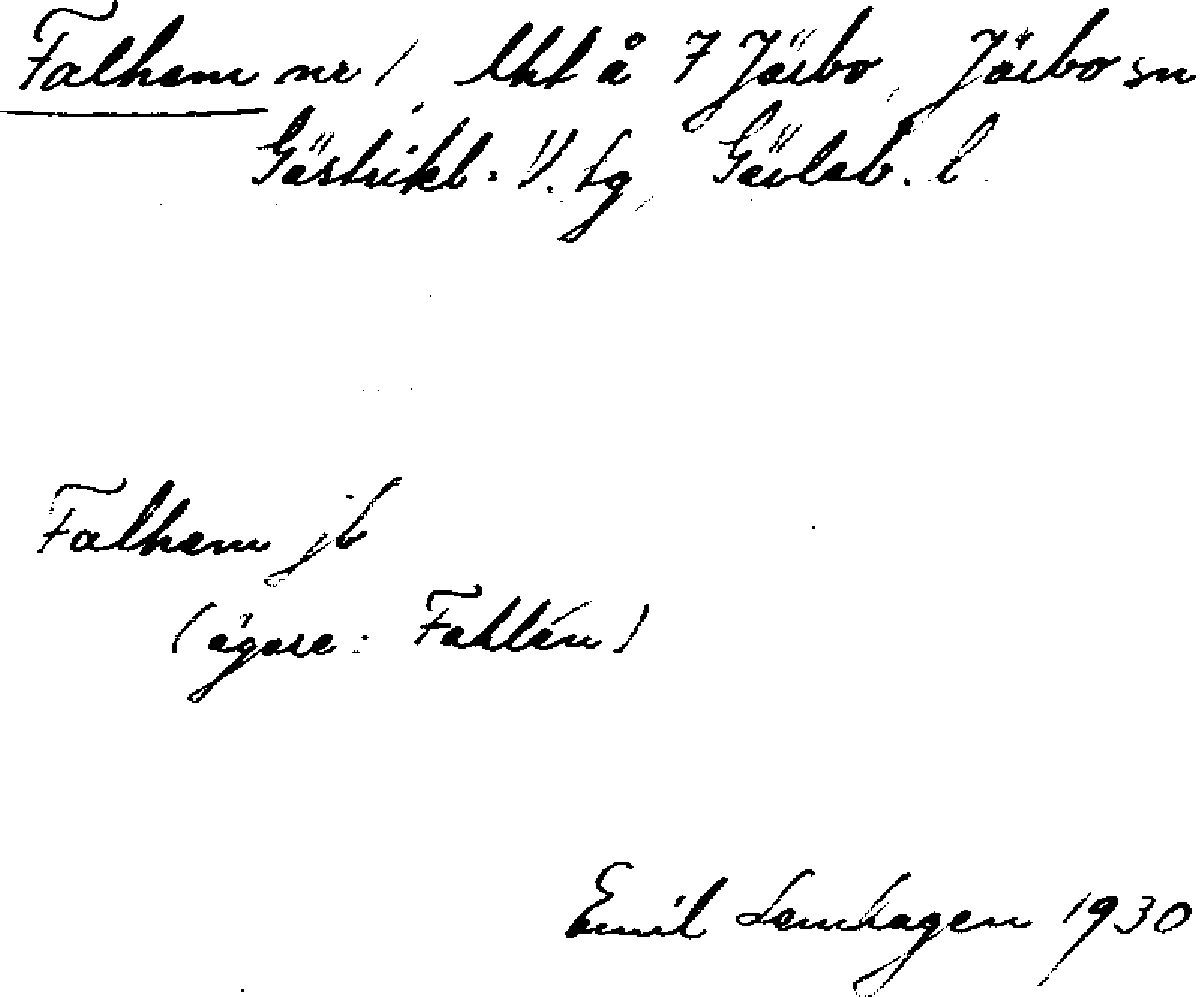 Falhem nr 1 lht å 7 Järbo, Järbo sn
Gästrikl. V. tg, Gävleb. l.
Falhem jb
(ägare: Fahlén)
Emil 1930